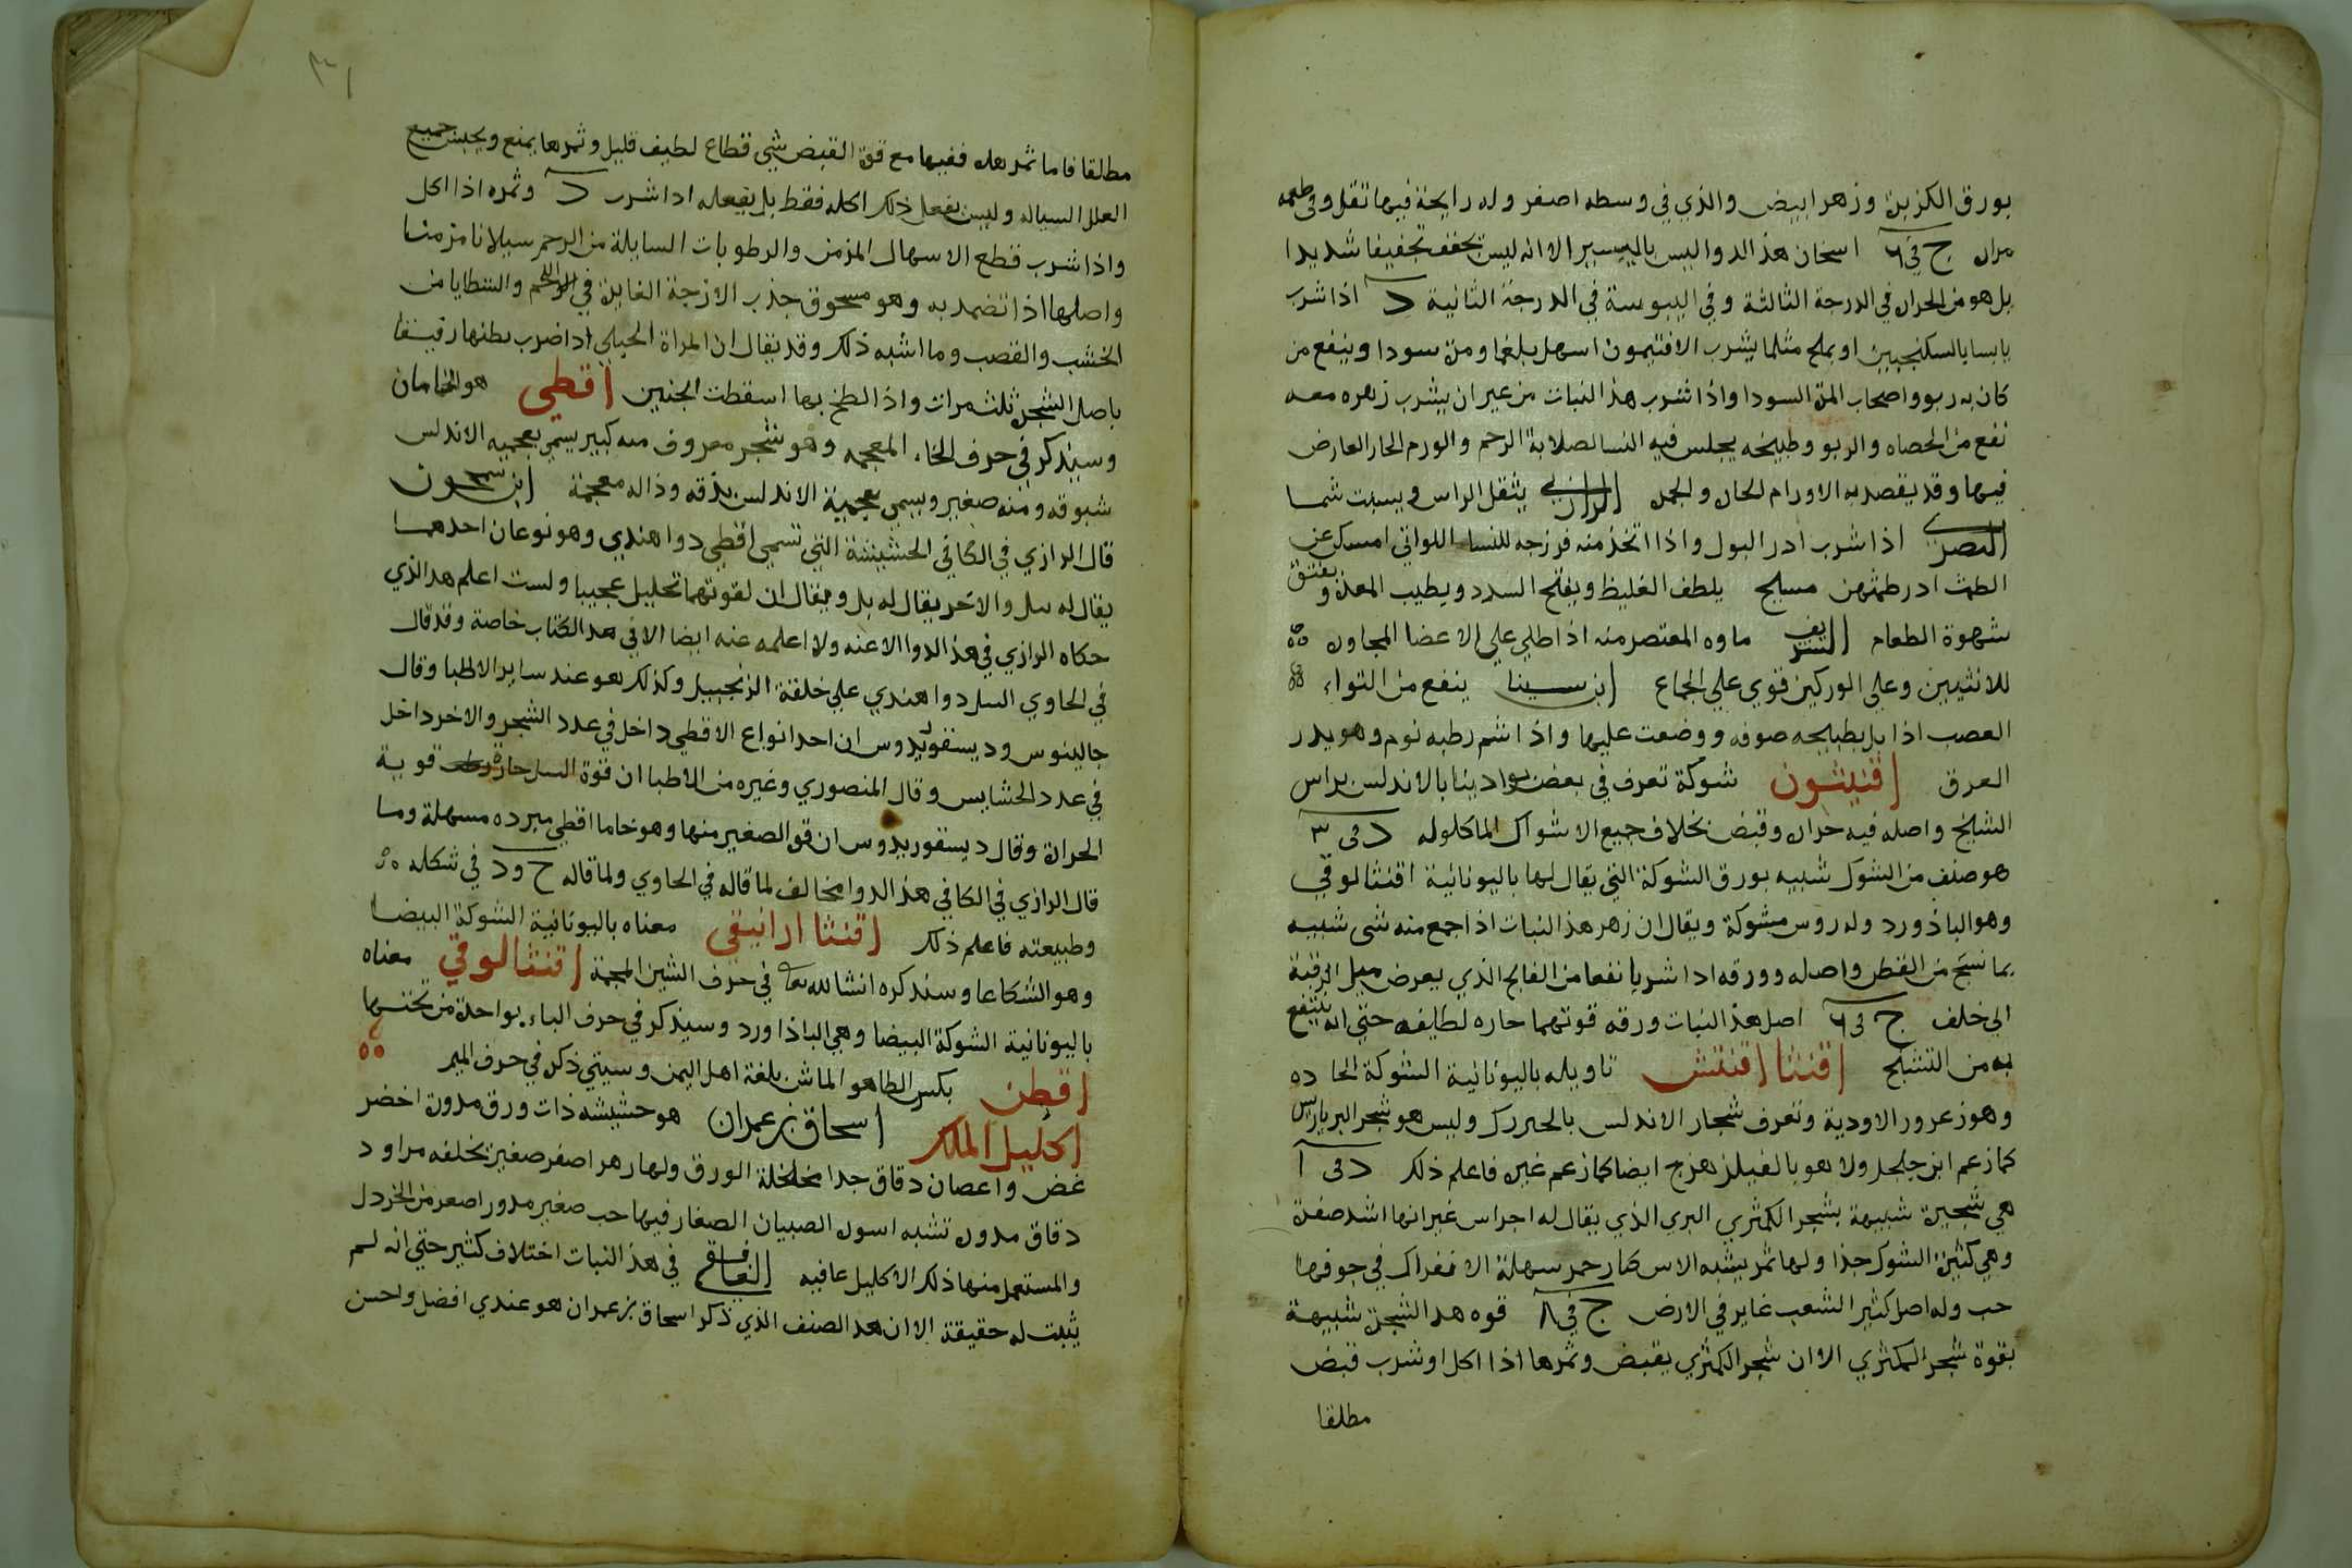 بورق الكزبرة وزهر ابيض والذي في وسطه اصفر وله رايحة فيها ثقل وفي طعمه
مرارة ج في ٦ اسخان هذا الدوا ليس باليسير الا انه ليس يجفف تجفيفا شديدا
بل هو من الحرارة في الدرجة الثالثة وفي اليبوسة في الدرجة الثانية د اذا شرب
يابسا بالسكنجبين او بملح مثلما يشرب الافتيمون اسهل بلغما ومرة سودا وينفع من
كان به ربو واصحاب المرة السودا واذا شرب هذا النبات من غير ان يشرب زهره معه
نفع من الحصاه والربو وطبيخه يجلس فيه النسا لصلابة الرحم والورم الحار العارض
فيها وقد يقصد به الاورام الحارة والجمرة الرازي يثقل الراس ويسبت شما
البصري اذا شرب ادر البول واذا اتخذ منه فرزجه للنساء اللواتي امسكن عن
الطمث ادر طمثهن مسيح يلطف الغليظ ويفتح السدد ويطيب المعدة ويفتق
شهوة الطعام الشريف ماوه المعتصر منه اذا طلي على الاعضا المجاورة
للانثيين وعلى الوركين قوي على الجماع ابن سينا ينفع من التواء
العصب اذا بل بطبيخه صوفه ووضعت عليها واذا اشم رطبه نوم وهو يدر
العرق اقنيثون شوكة تعرف في بعض بوادينا بالاندلس براس
الشيخ واصله فيه حرارة وقبض بخلاف جميع الاشواك الماكلوله د في ٣
هو صنف من الشوك شبيه بورق الشوكة التي يقال لها باليونانية اقنثا لوقي
وهو الباذورد وله روس مشوكة ويقال ان زهر هذا النبات اذا جمع منه شى شبيه
بما نسج من القطن واصله وورقه اذا شربا نفعا من الفالج الذي يعرض ميل الرقبة
الى خلف ج في ٦ اصل هذا النبات ورقه قوتهما حاره لطايفه حتى انه ينتفع
به من التشنج اقنثا اقنتش تاويله باليونانية الشوكة الحاده
وهو زعرور الاودية وتعرف شجار الاندلس وليس هو شجر البرباريس
كما زعم ابن جلجل ولا هو بالفيلزهزج ايضا كما زعم غيره فاعلم ذلك د في ١
هي شجيرة شبيهة بشجر الكمثري البري الذي يقال له اجراس غير انها اشد صفرة
وهي كثيرة الشوك جذا ولها ثمر يشبه الاس كبار حمر سهلة الانفراك في جوفها
حب وله اصل كثير الشعب غاير في الارض ج في ٨ قوه هذا الشجرة شبيهة
بقوة شجر الكمثري الا ان شجر الكمثري يقبض وثمرها اذا اكل او شرب قبض
مطلقا
٣١
مطلقا فاما ثمر هذه ففيها مع قوة القبض شي قطاع لطيف قليل وثمرها يمنع ويحبس جميع
العلل السياله وليس يفعل ذلك اكله فقط بل يفعله اذا شرب د وثمره اذا اكل
واذا شرب قطع الاسهال المزمن والرطوبات السايلة من الرحم سيلانا مزمنا
واصلها اذا تضمد به وهو مسحوق جذب الازجة الغايرة في اللحم والشظايا من
الخشب والقصب وما اشبه ذلك وقد يقال ان المراة الحبلى اذا ضرب بطنها رقيقا
باصل الشجرة ثلث مرات واذا لطخ بها اسقطت الجنين اقطي هو الخامان
وسيذكر في حرف الخاء المعجمه وهو شجر معروف منه كبير يسمى بعجمية الاندلس
شبوقه ومنه صغير ويسمى بعجمية الاندلس يذقه وذاله معجمة ابن سمحون
قال الرازي في الكافي الحشيشة التي تسمى اقطي دوا هندي وهو نوعان احدهما
يقال له سل والاخر يقال له بل ويقال ان لقوتهما تحليل عجيبا ولست اعلم هذا الذي
حكاه الرازي في هذا الدوا الا عنه ولا اعلمه عنه ايضا الا في هذا الكتاب خاصة وقد قال
في الحاوي السل دوا هندي على خلقة الزنجبيل وكذلك هو عند ساير الاطبا وقال
جالينوس وديسقوريدوس ان احد انواع الاقطي داخل في عدد الشجر والاخر داخل
في عدد الحشايس وقال المنصوري وغيره من الاطبا ان قوة السل حارة قوية
الحرارة وقال ديسقوريدوس ان قوة الصغير منها وهو خاما اقطي مبرده مسهلة وما
قال الرازي في الكافي هذا الدوا مخالف لما قاله في الحاوي ولما قاله ج ود في شكله
وطبيعته فاعلم ذلك اقنثا ارانيقي معناه باليونانية الشوكة البيضا
وهو الشكاعا وسنذكره انشا الله تعا في حرف الشين المعجمة اقنثا لوقي معناه
باليونانية الشوكة البيضا وهي الباذاورد وسيذكر في حرف الباء بواحدة من تحتها
اقطن بكسر الطا هو الماش بلغة اهل اليمن وسيتي ذكره في حرف الميم
اكليل الملك اسحاق بن عمران هو حشيشه ذات ورق مدورة اخضر
غض واغصان دقاق جدا مخلخلة الورق ولها زهر اصفر صغير يخلفه مزاود
دقاق مدورة تشبه اسورة الصبيان الصغار فيها حب صغير مدور اصغر من الخردل
والمستعمل منها ذلك الاكليل عافيه الغافقي في هذا النبات اختلاف كثير حتى انه لم
يثبت له حقيقة الا ان هذا الصنف الذي ذكر اسحاق بن عمران هو عندي افضل واحسن